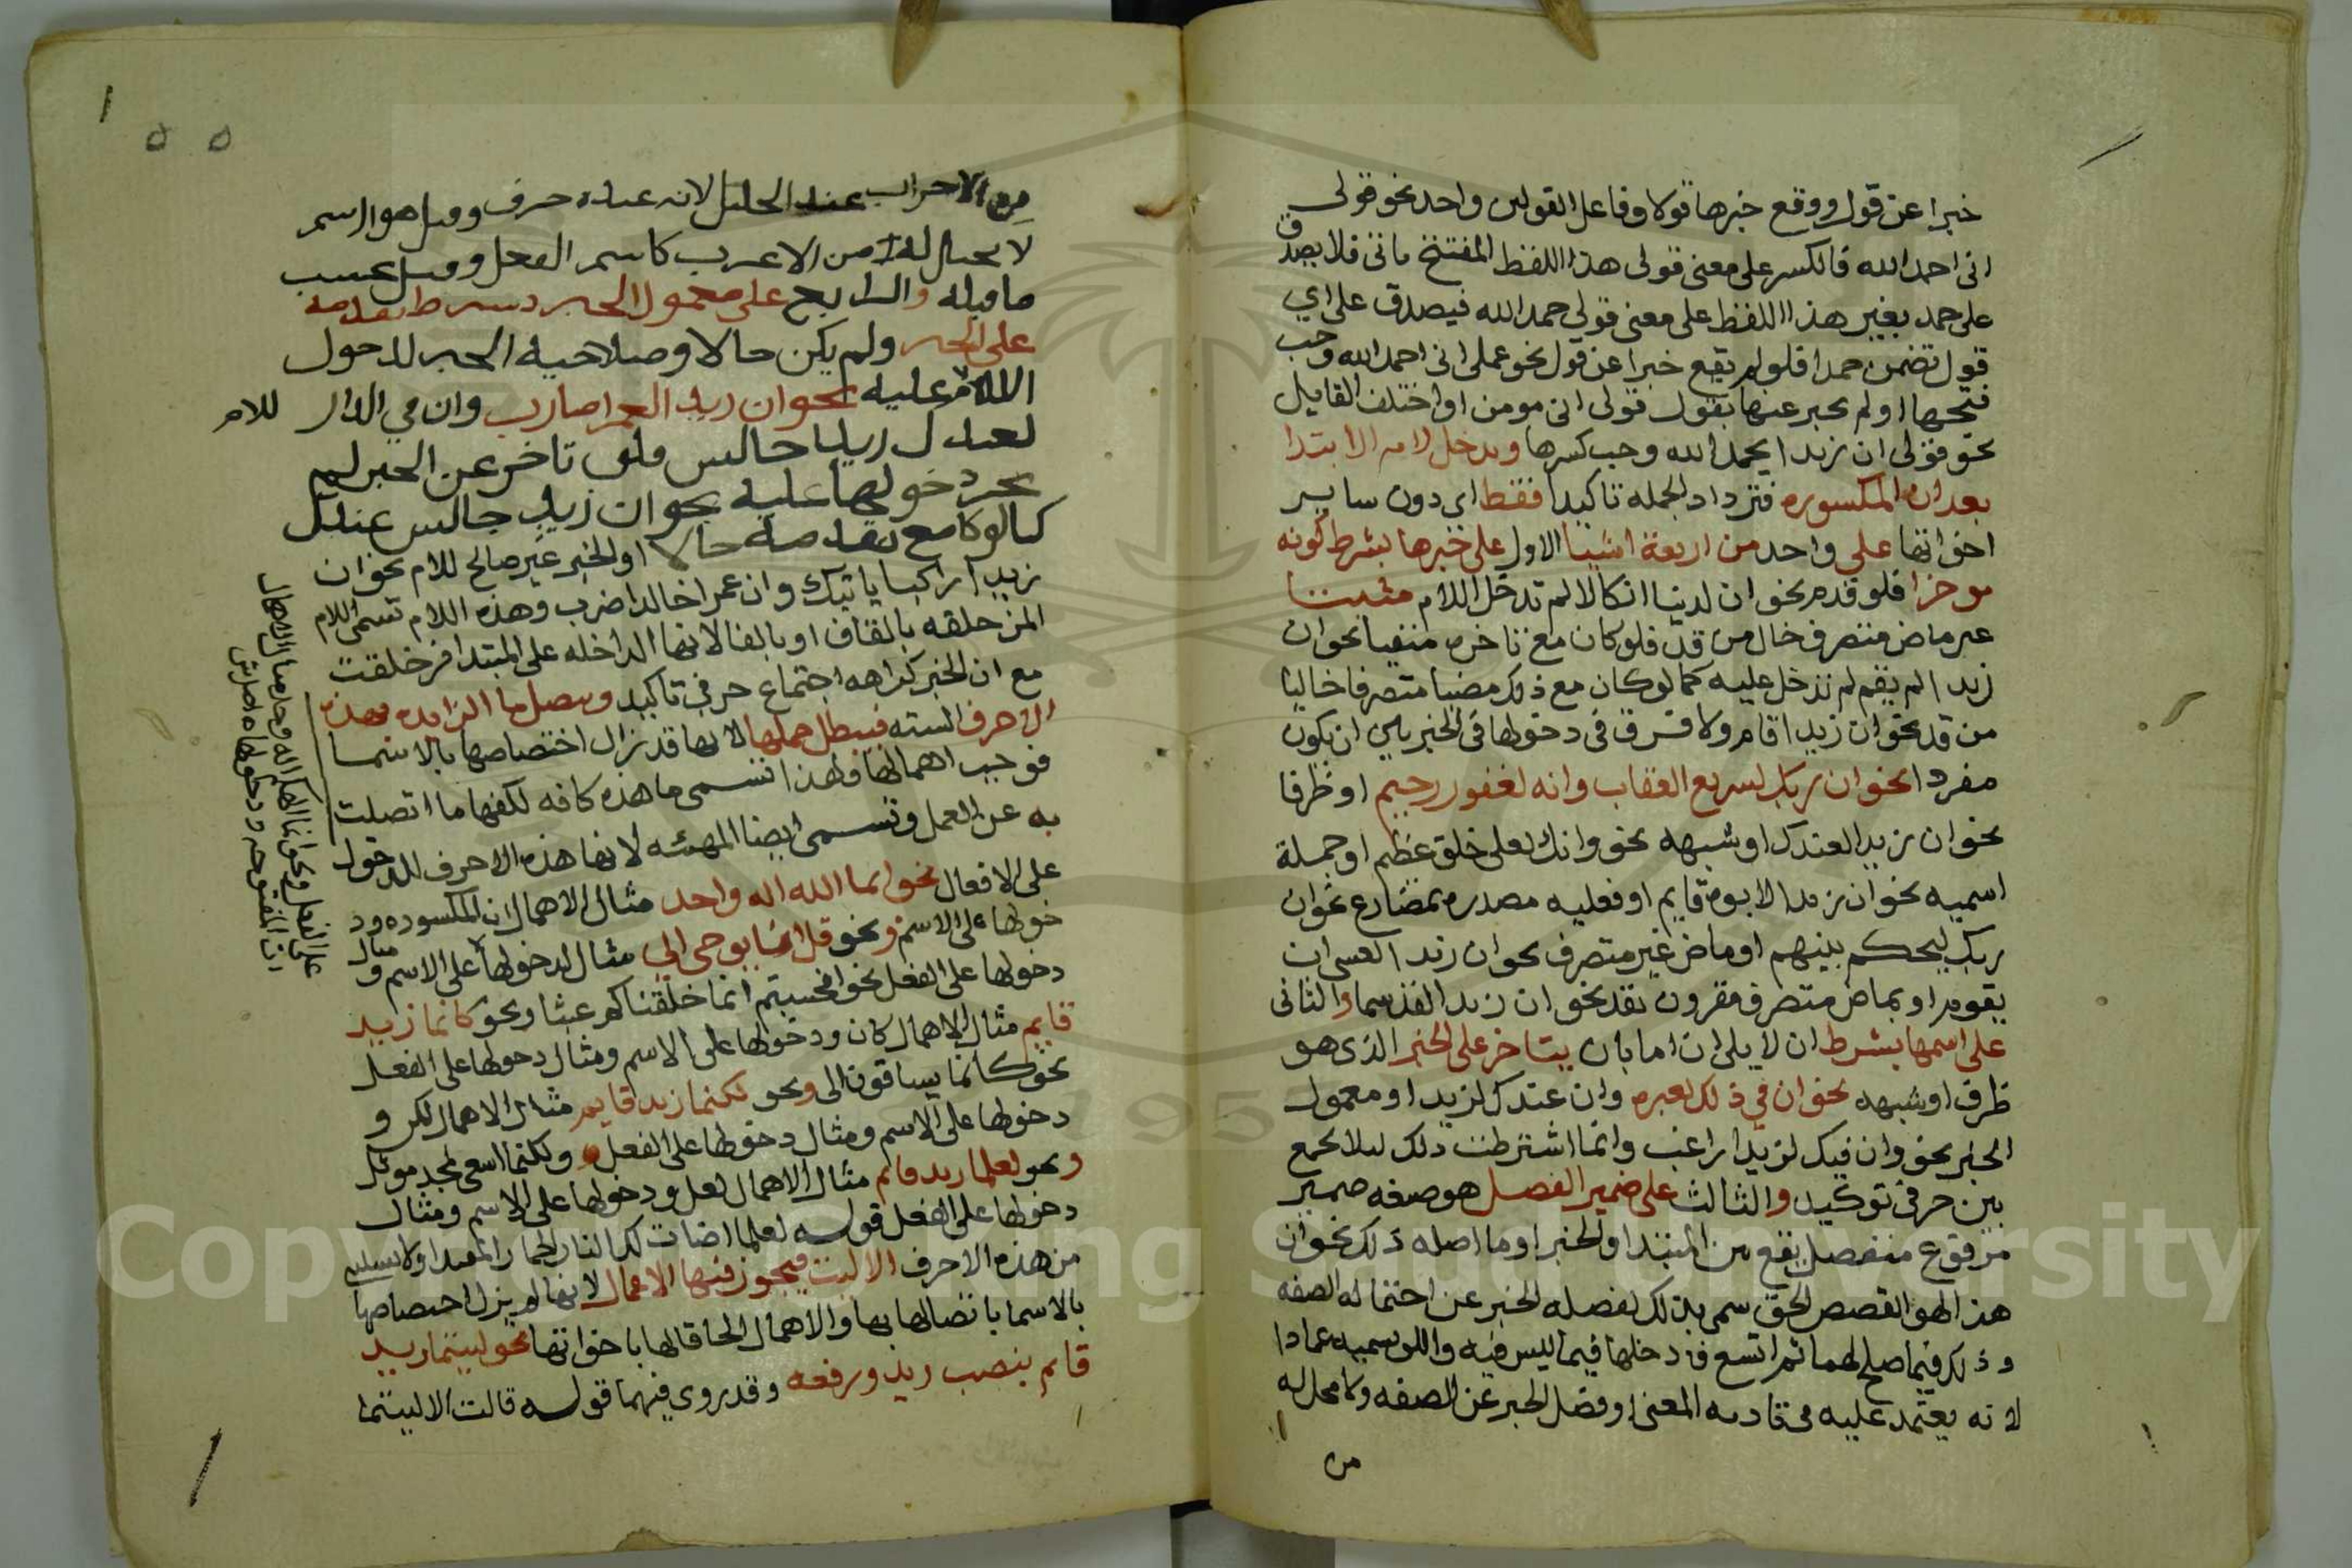 خبرا عن قول ووقع خبرها قولا وفاعل القولين واحد نحو قولى
انى احمد الله فالكسر على معنى قولى هذا اللفظ المفتتح بانى فلا يصدق
على حمد بغير هذا اللفظ على معنى قولي حمد الله فيصدق على اي
قول تضمن حمدا فلو لم يقع خبرا عن قول نحو عملى انى احمد الله وجب
فتحها او لم يخبر عنها بقول قولى انى مومن او اختلف القايل
نحو قولى ان زيدا يحمد الله وجب كسرها وتدخل لام الابتدا
بعد ان المكسوره فتزداد الجمله تاكيدا فقط اي دون ساير
اخواتها على واحد من اربعة اشيا الاول على خبرها بشرط كونه
موخرا فلو قدم نحو ان لدينا انكالا لم تدخل اللام مثبتا
غير ماض متصرف خال من قد فلو كان مع تاخره منفيا نحو ان
زيدا لم يقم لم تدخل عليه كما لو كان مع ذلك مضيا متصرفا خاليا
من قد نحو ان زيدا قام ولا فرق في دخولها في الخبر بين ان يكون
مفردا نحو ان ربك لسريع العقاب وانه لغفور رحيم او ظرفا
نحو ان زيدا لعندك او شبهه نحو وانك لعلى خلق عظيم او جملة
اسميه نحو ان زيدا لابوه قايم او فعليه مصدره بمضارع نحو ان
ربك ليحكم بينهم او ماض غير متصرف نحو ان زيدا لعسى ان
يقوم او بماض متصرف مقرون بقد نحو ان زيدا لقد سما والثانى
على اسمها بشرط ان لا يلى ان اما بان يتاخر على الخبر الذى هو
ظرف او شبهه نحو ان في ذلك لعبره وان عندك لزيدا او معمول
الخبر نحو وان فيك لزيدا راغب وانما اشترطت ذلك ليلا يجمع
بين حرفى توكيد والثالث على ضمير الفصل هو صيغه ضمير
مرفوع منفصل يقع بين المبتدا والخبر او ما اصله ذلك نحو ان
هذا لهو القصص الحق سمى بذلك لفصله الخبر عن احتماله الصفه
وذلك فيما صلح لهما ثم اتسع فى دخلها فيما ليس فيه واللو يسميه عمادا
لانه يعتمد عليه فى تادية المعنى او فصل الخبر عن الصفه ولا محل له
من
من الاعراب عند الخليل لانه عنده حرف وقيل هو اسم
لا محل له من الاعرب كاسم الفعل وقيل بحسب
ما قبله والرابع على معمول الخبر بشرط تقدمه
على الخبر ولم يكن حالا وصلاحية الخبر لدخول
اللام عليه نحو ان زيدا لعمرا ضارب وان في الدار للام
لعندك زيدا جالس فلو تاخر عن الخبر لم
يجز دخولها عليه نحو ان زيدا جالس عندك
كما لو كا مع تقدمه حالا او الخبر غير صالح للام نحو ان
زيدا راكبا ياتيك وان عمرا خالدا ضرب وهذه اللام تسمى اللام
المزحلقه بالقاف او بالفا لانها الداخله على المبتدا فزحلقت
مع ان للخبر كراهه اجتماع حرفي تاكيد وتتصل ما الزايده بهذه
الاحرف السته فيبطل عملها لانها قد زال اختصاصها بالاسما
فوجب اهمالها ولهذا تسمى ما هذه كافه لكفها ما اتصلت
به عن العمل وتسمى ايضا المهيئه لانها هذه الاحرف للدخول
على الافعال نحو انما الله اله واحد مثال لاهمال ان المكسوره ود
خولها على الاسم ونحو قل انما يوحى الي مثال لدخولها على الاسم و مثال
دخولها على الفعل نحو افحسبتم انما خلقناكم عبثا ونحو كانما زيد
قايم مثال لاهمال كان ودخولها على الاسم ومثال دخولها على الفعل
نحو كانما يساقون الى ونحو لكنما زيد قايم مثال لاهمال لكن و
دخولها على الاسم ومثال دخولها على الفعل ولكنما اسعى لمجد موثل
ونحو لعلما زيد قايم مثال لاهمال لعل ودخولها على الاسم ومثال
دخولها على الفعل قوله لعلما اضات لك النار الحمار المقيدا ولا يستثنى
من هذه الاحرف الا ليت فيجوز فيها الاعمال لانها لم يزل اختصاصها
بالاسما باتصالها بها والاهمال الحاقا لها باخواتها نحو ليتما زيد
قايم بنصب زيد ورفعه وقد روى فيهما قوله قالت الا ليتما